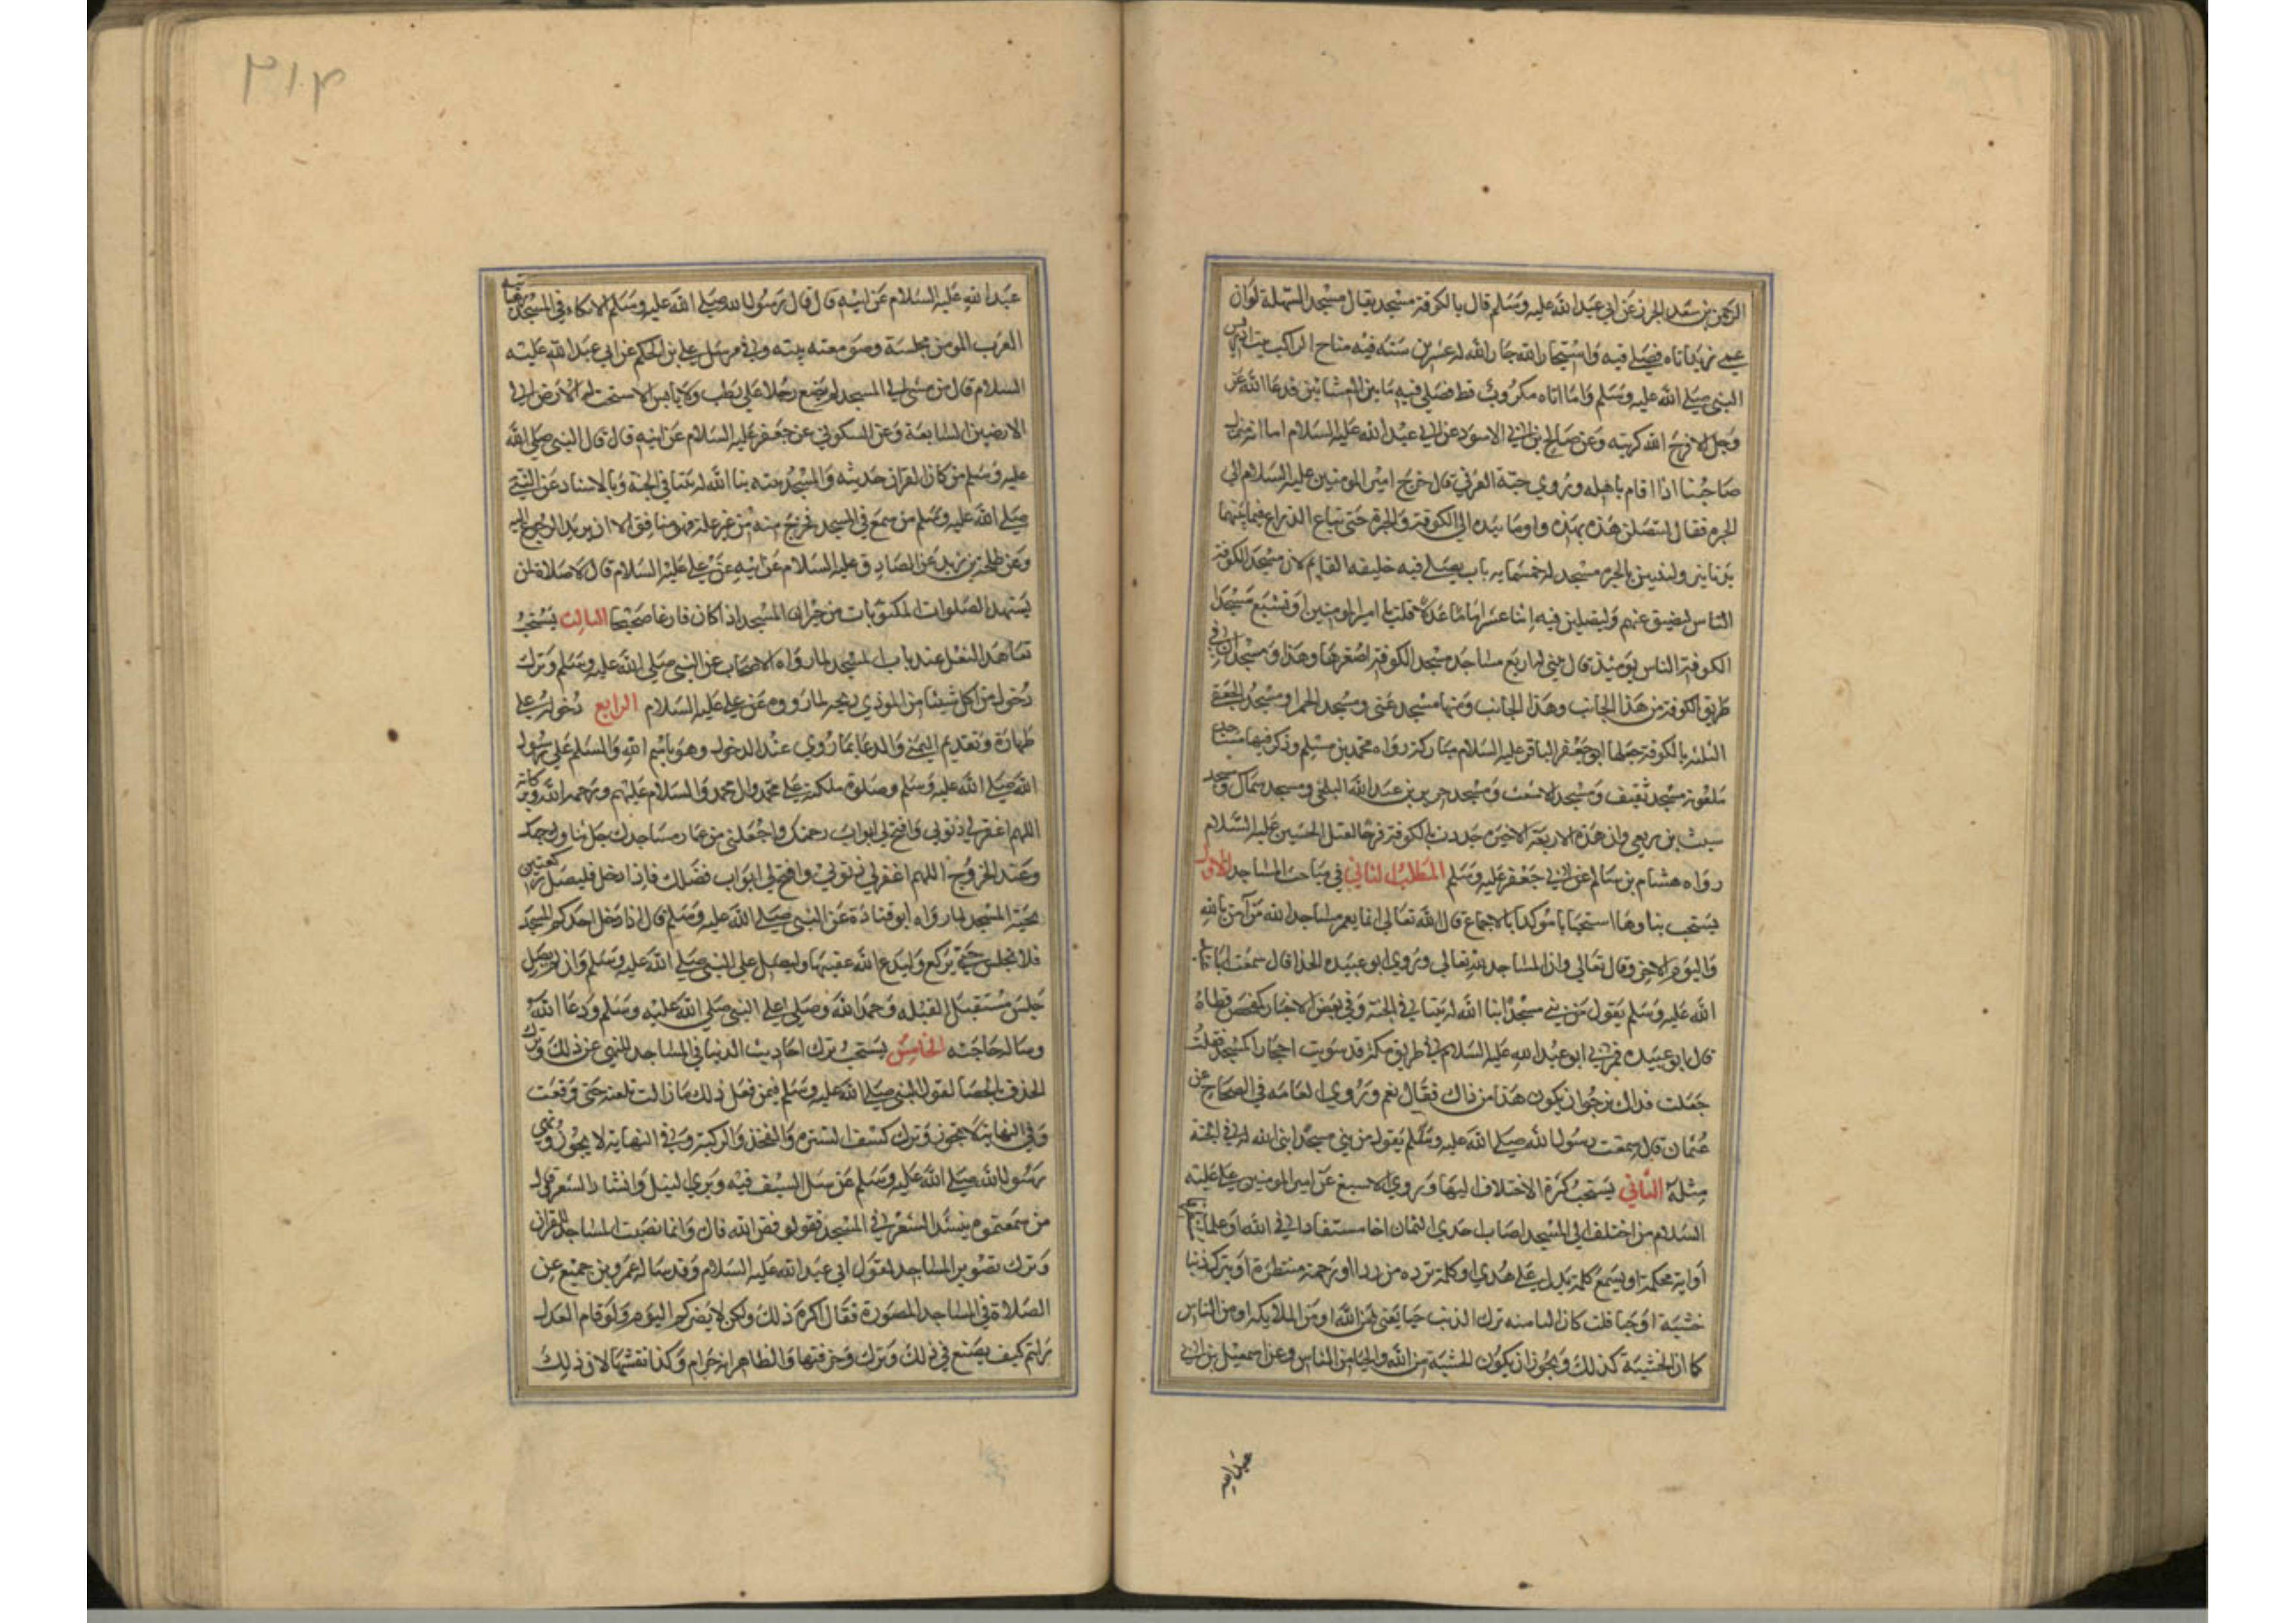 الرحمن بن سعد الخزاز عن ابي عبد الله عليه وسلم قال بالكوفة مسجد يقال مسجد السهلة لو ان
عمي زيد اتاه فصلى فيه واستجار الله جار الله له عشرين سنة فيه مناخ الراكب وبيت ادريس
النبي صلى الله عليه وسلم وما اتاه مكروب قط فصلي فيه ما بين العشائين فدعا الله عز
وجل الا فرج الله كربته وعن صالح بن ابي الاسود عن ابي عبد الله عليه السلام اما انه منزل
صاحبنا اذا قام باهله وروي حبة العرني قال خرج امير المومنين عليه السلام الى
الحره فقال لتتصلن هذه بهذه واوما بيده الى الكوفة والحرة حتى يباع الذراع فيما بينهما
بدنانير وليبنين بالحره مسجد له خمسمايه باب يصلى فيه خليفه القايم لان مسجد الكوفة
الناس ليضيق عنهم وليصلين فيه اثنا عشر اماما عدلا قلت يا امير المومنين او تسع مسجد
الكوفة الناس يومئذ قال يبني لها اربع مساجد مسجد الكوفة اصغرها وهذا ومسجدان في
طريق الكوفة من هذا الجانب وهذا الجانب ومنها مسجد غني ومسجد الحمرا ومسجد الجعفي
الثلثه بالكوفة جعلها ابو جعفر الباقر عليه السلام مباركة رواه محمد بن مسلم وذكر فيها مساجد
ملعونة مسجد ثقيف ومسجد الاشعث ومسجد جرير بن عبد الله البجلي ومسجد سماك ومسجد
شبث بن ربعي وان هذه الاربعة الاخيره جددت بالكوفة فرحا لقتل الحسين عليه السلام
رواه هشام بن سالم عن ابي جعفر عليه وسلم المطلب الثاني في مباحث المساجد الاول
يستحب بناوها استحبابا موكدا بالاجماع قال الله تعالى انما يعمر مساجد الله من آمن بالله
واليوم الاخر وقال تعالى وان المساجد لله تعالى وروي ابو عبيده الحذا قال سمعت
الله عليه وسلم يقول من بني مسجدا بنا الله له بيتا في الجنة وفي بعض الاخبار كمفحص قطاة
قال ابو عبيده فمر بي ابو عبد الله عليه السلام في طريق مكة وقد سويت احجارا لمسجد فقلت
جعلت فداك نرجو ان يكون هذا من ذاك فقال نعم وروي العامه في الصحاح عن
عثمان قال سمعت رسول الله صلى الله عليه وسلم يقول من بني مسجدا بنى الله له في الجنة
مثله الثاني يستحب كثرة الاختلاف اليها وروي الاصبغ عن امير المومنين علي عليه
السلام من اختلف الى المسجد اصاب احدي الثمان اخا مستفادا في الله او علما
او اية محكمة او يسمع كلمة تدل على هدي او كلمة ترده من ردا او رحمة منتظرة او يترك ذنبا
خشية او حيا قلت كان الثامنه ترك الذنب حيا يعني من الله او من الملايكة او من الناس
كما ان الخشية كذلك ويجوز ان يكون الخشية من الله والحيا من الناس وعن اسمعيل بن ابي
عبد الله
عبد الله عليه السلام عن ابيه قال قال رسول الله صلى الله عليه وسلم الاتكاء في المسجد رهبانية
العرب المومن مجلسة وصومعته بيته وفي مرسل علي بن الحكم عن ابي عبد الله عليه
السلام قال من مشى الى المسجد لم يضع رجلا على رطب ولا يابس الا سبحت له الارض الى
الارضين السابعة وعن السكوني عن جعفر عليه السلام عن ابيه قال قال النبي صلى الله
عليه وسلم من كان القران حديثه والمسجد بيته بنا الله له بيتا في الجنة وبالاسناد عن النبي
صلى الله عليه وسلم من سمع في المسجد فخرج منه من غير علة فهو منافق الا ان يريد الرجوع اليه
وعن طلحة بن زيد عن الصادق عليه السلام عن ابيه عن علي عليه السلام قال لا صلاة لمن
يشهد الصلوات المكتوبات من جيران المسجد اذا كان فارغا صحيحا الثالث يستحب
تعاهد النعل عند باب المسجد لما رواه الاصحاب عن النبي صلى الله عليه وسلم وترك
دخول من اكل شيئا من الموذي ريحه لما رووه عن علي عليه السلام الرابع دخوله على
طهارة وتقديم اليمنى والدعا بما روي عند الدخول وهو باسم الله والسلم على رسول
الله صلى الله عليه وسلم وصلوة ملئكته على محمد وال محمد والسلام عليهم ورحمه الله وبركاته
اللهم اغفر لي ذنوبي وافتح لي ابواب رحمتك واجعلني من عمار مساجدك جل ثناء وجهك
وعند الخروج اللهم اغفر لي ذنوبي وافتح لي ابواب فضلك فاذا دخل فليصل ركعتين
تحية المسجد لما رواه ابو قتادة عن النبي صلى الله عليه وسلم قال اذا دخل احدكم المسجد
فلا يجلس حتى يركع وليدع الله عقيبها وليصل على النبي صلى الله عليه وسلم وان لم يصل
جلس مستقبل القبله وحمد الله وصلى على النبي صلى الله عليه وسلم ودعا الله
وساله حاجته الخامس يستحب ترك احاديث الدنيا في المساجد للنهي عن ذلك وترك
الخذف بالحصا لقول النبي صلى الله عليه وسلم فيمن فعل ذلك ما زالت تلعنه حتى وقعت
وفي النهاية لا يجوز وترك كشف السره والفخذ والركبة وفي النهاية لا يجوز ونهى
رسول الله صلى الله عليه وسلم عن سل السيف فيه وبري النبل وانشاد الشعر قال
من سمعتموه ينشد الشعر في المسجد فقولو فض الله فاك وانما نصبت المساجد للقران
وترك تصوير المساجد لقول ابي عبد الله عليه السلام وقد ساله عمرو بن جميع عن
الصلاة في المساجد المصورة فقال اكره ذلك ولكن لا يضركم اليوم ولو قام العدل
رايتم كيف يصنع في ذلك وترك زخرفتها والظاهر انه حرام وكذا نقشها لان ذلك